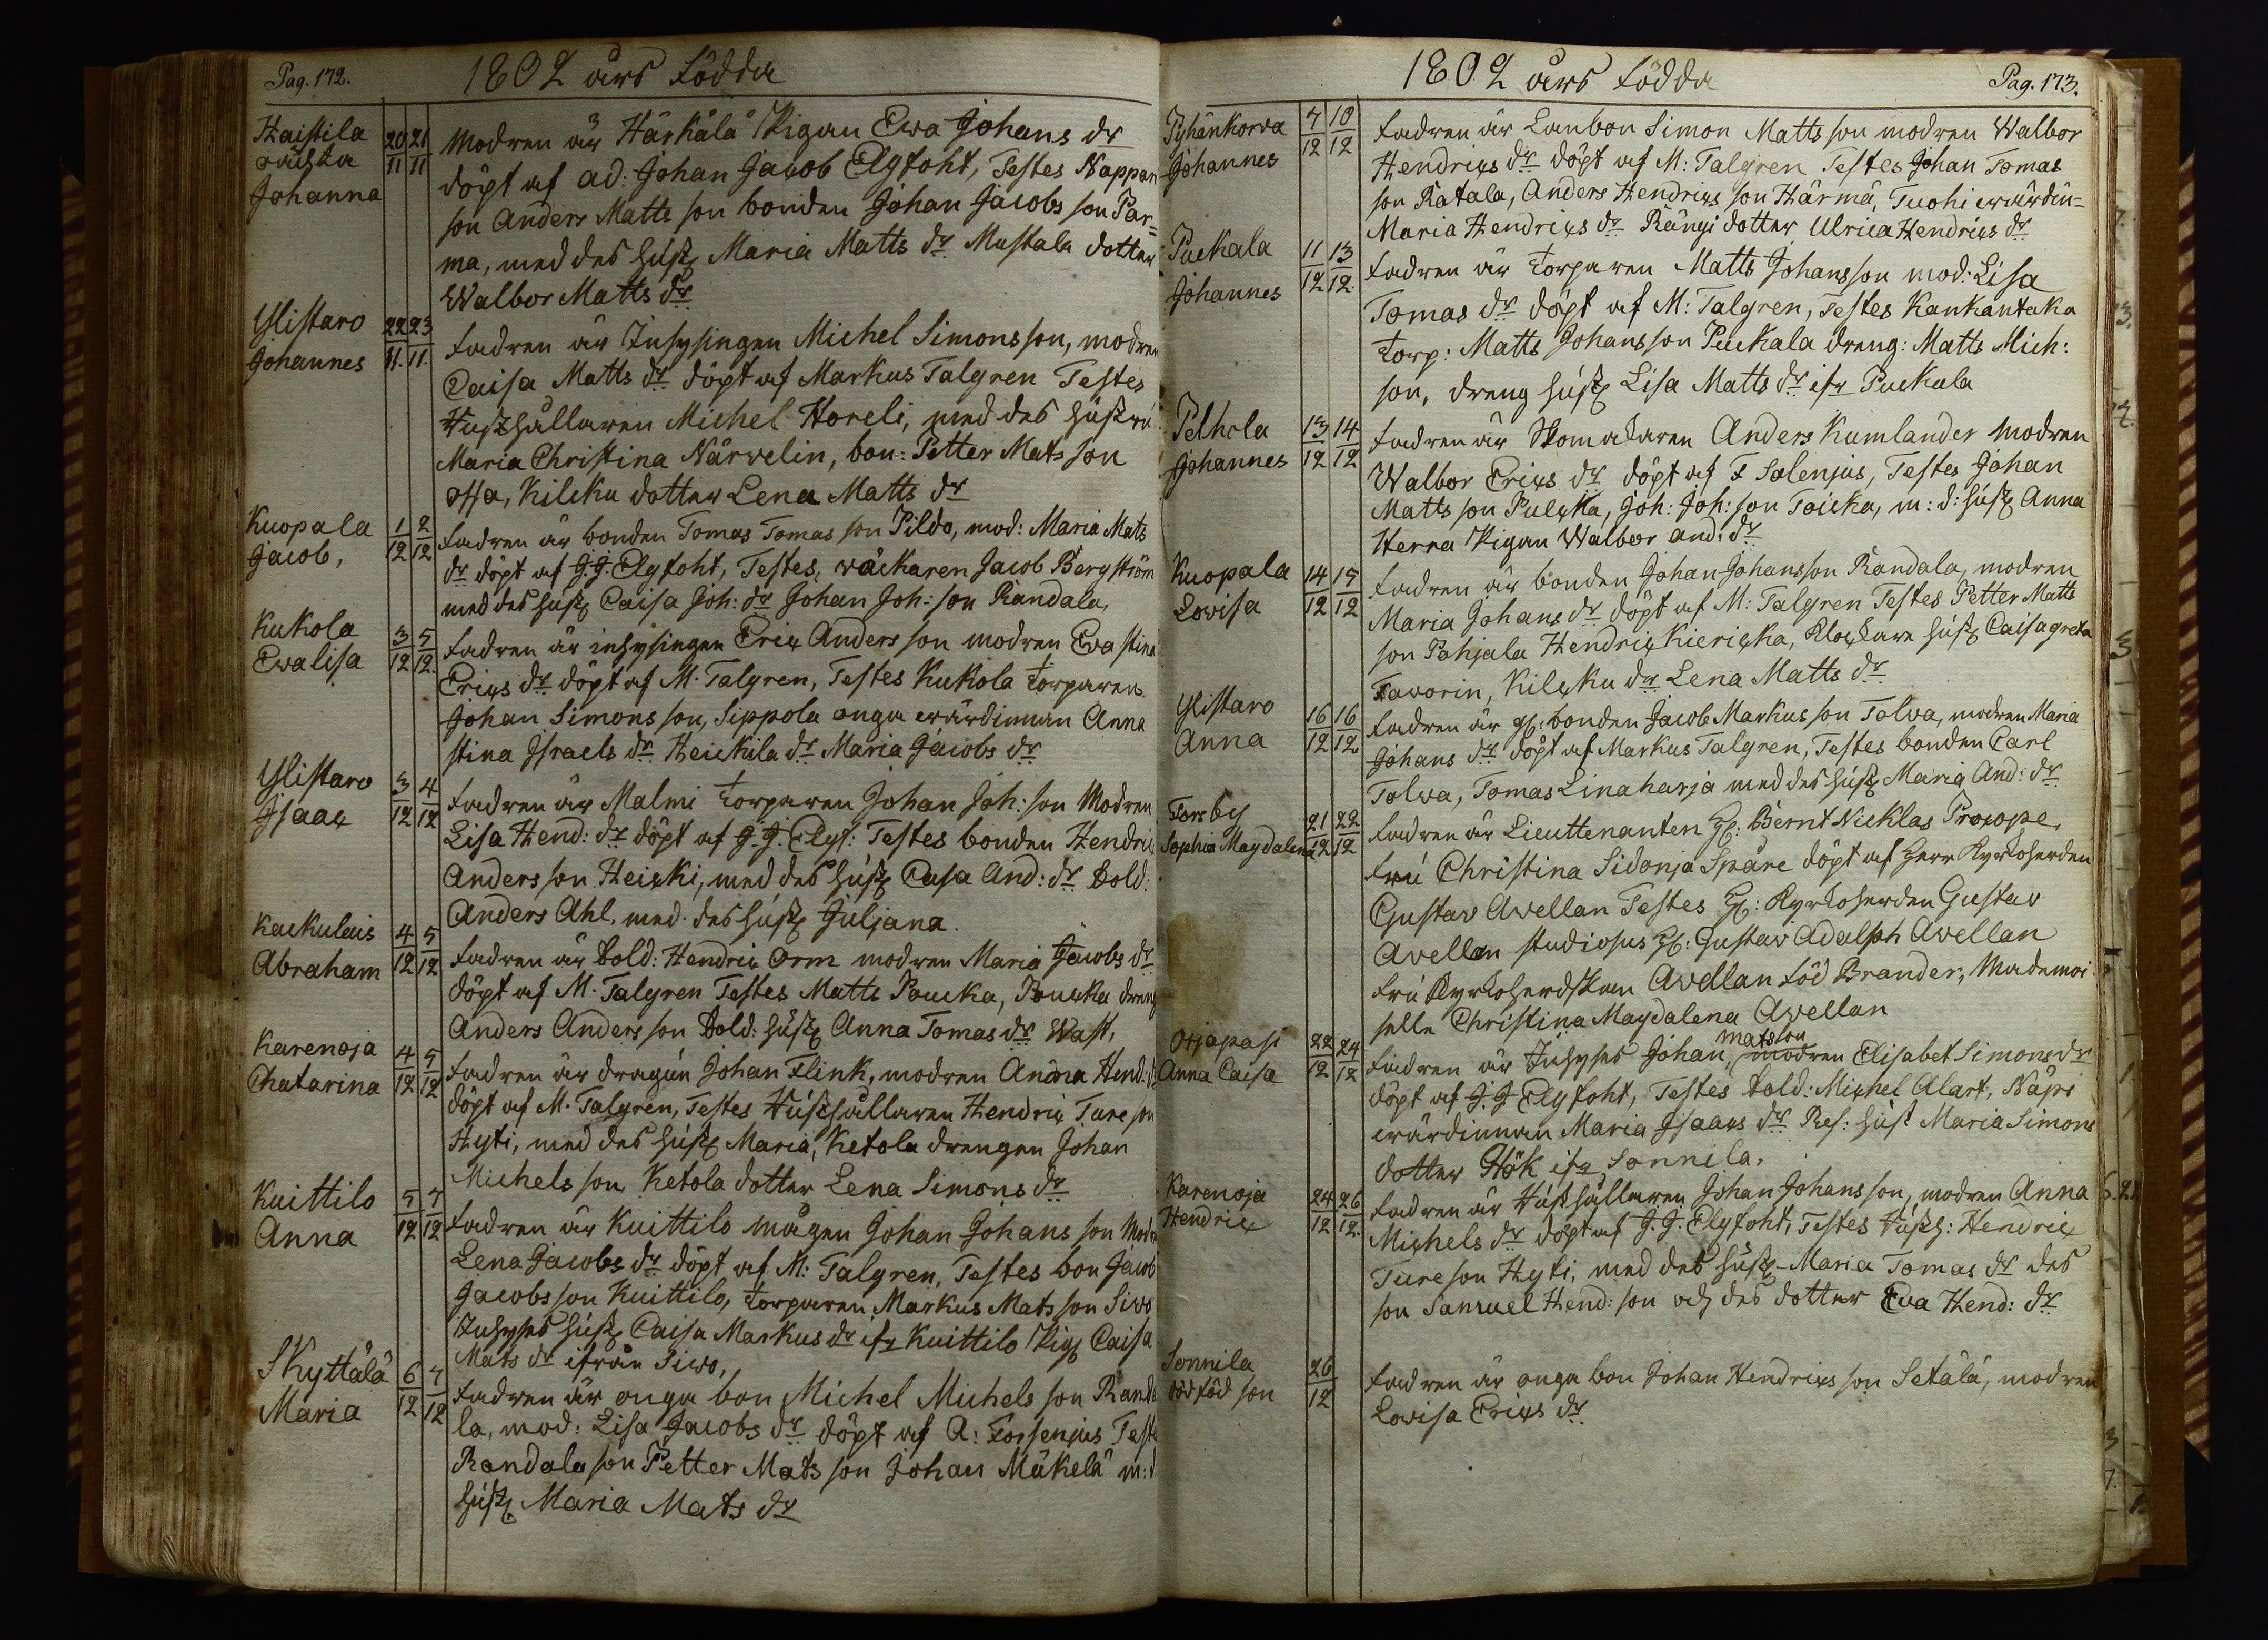 Pag. 172.
1802 års födda
Haistila
oäkta
Johanna
20/11 21/11
Modren är Härkälä Pigan Ewa Johans dr
döpt af ad: Johan Jacob Elgfoht, Testes Nappan
son Anders Matts son bonden Johan Jacobs son Par=
ma, med des hust Maria Matts dr Mustala dotter
Walbor Matts dr
Ylistaro
Johannes
22/11. 23/11.
fadren är Inhysingen Michel Simons son, modren
Caisa Matts dr döpt af Markus Talgren Testes
Hushållaren Michel Horeli, med des hustru
Maria Christina Närvelin, bon: Petter Mats son
Ossa, Kilcku dotter Lena Matts dr
Kuopala
Jacob,
1/12 2/12
fadren är bonden Tomas Tomas son Pildo, mod: Maria Mats
dr döpt af J.J. Elgfoht, Testes, väckaren Jacob Bergström
med des hust Caisa Joh: dr Johan Joh: son Randala,
Kukola
Ewalisa
3/12 5/12.
fadren är inhysingen Eric Anders son modren Eva stina
Erics dr döpt af M. Talgren, Testes Kukola torparen
Johan Simons son, Sippola onga wärdinnan Anna
stina Israels dr Heickila dr Maria Jacobs dr
Ylistaro
Isaac
3/12 4/12
fadren är Malmi torparen Johan Joh: son Modren
Lisa Hend: dr döpt af J.J. Elgf: Testes bonden Hendric
Anders son Heicki, med des hust Casa And: dr Sold:
Anders Ahl. med des hust Juljana.
Kackulais
Abraham
4/12 5/12
fadren är Sold: Hendric Orm modren Maria Jacobs dr
döpt af M. Talgren Testes Matts Poucka, Poucka dreng
Anders Anders son Sold: hust Anna Tomas dr Wast,
Karenoja
Chatarina
4/12 5/12
fadren är dragun Johan Flink, modren Anna Hend: dr
döpt af M. Talgren, Testes Hushållaren Hendric Ture son
Hyti, med des hust Maria, Ketola drengen Johan
Michels son, Ketola dotter Lena Simons dr
Kuittilo
Anna
5/12 7/12
fadren är Kuittilo mågen Johan Johans son Modr
Lena Jacobs dr döpt af M: Talgren, Testes bon Jacob
Jacobs son Kuittilo, torparen Markus Mats son Sivo
Inhyses hust Caisa Markus dr ifr Kuittilo Pig Caisa
Mats dr ifrån Siwo,
Skyttälä
Maria
6/12 7/12
fadren är onga bon Michel Michels son Randa
la, mod: Lisa Jacobs dr döpt af A: Forsenius Teste
Randala son Petter Mats son Johan Mäkelä m: d
hust Maria Mats dr
1802 års födda
Pag. 173.
Pyhänkorva
Johannes
7/12 10/12
fadren är Lanbon Simon Matts son modren Walbor
Hendrics dr döpt af M: Talgren Testes Johan Tomas
son Ratala, Anders Hendrics son Härmä, Tuohi wärdin=
Maria Hendrics dr Rängi dotter Ulrica Hendrics dr
Puckala
Johannes
11/12 13/12.
fadren är torparen Matts Johansson mod: Lisa
Tomas dr döpt af M: Talgren, Testes Kankantaka
torp: Matts Johansson Puckala dreng: Matts Mich:
son, dreng hust Lisa Matts dr ifr Puckala
Pelhola
Johannes
13/12 14/12
fadren är Skomakaren Anders Kumlander modren
Walbor Erics dr döpt af F Salenius, Testes Johan
Matts son Pulcka, Joh: Joh: son Toicka, m: d: hust Anna
Herra Pigan Walbor and: dr
Kuopala
Lovisa
14/12 15/12
fadren är bonden Johan Johansson Randala, modren
Maria Johans dr döpt af M: Talgren Testes Petter Matts
son Pohjala Hendric Kiericka, Klockare hust Caisagreta
Favorin, Kilcku dr Lena Matts dr
Ylistaro
Anna
16/12 16/12
fadren är gl: bonden Jacob Markus son Tolva, modren Maria
Johans dr döpt af Markus Talgren, Testes bonden Carl
Tolva, Tomas Linaharja med des hust Maria And: dr
Forsby
Sophia Magdalena
21/12 22/12
fadren är Lieuttenanten H: Bernt Nicklas Procope,
fru Christina Sidonja Spåre döpt af Herr Kyrkoherden
Gustav Avellan Testes H: Kyrkoherden Gustav
Avellan studiosus H: Gustav Adalph Avellan
fru Kyrkoherdskan Avellan föd Brander, Mademoi
selle Christina Magdalena Avellan
Orjapasi
Anna Caisa
22/12 24/12
matsson
fadren är Inhyses Johan, modren Elisabet Simons dr
döpt af J.J Elgfoht, Testes Sold: Michel Alart, Näpi
wärdinnan Maria Isaacs dr Ref: hust Maria Simons
dotter Hök ifr Sonnila,
Karenoja
Hendric
24/12 26/12.
fadren är Hushållaren Johan Johansson, modren Anna
Michels dr döpt af J.J. Elgfoht, Testes Hush: Hendric
Tureson Hyti, med des hust Maria Tomas dr des
son Samuel Hend: son och des dotter Eva Hend: dr
Sonnila
dödföd son
26/12
fadren är onga bon Johan Hendrics son Setälä, modren
Lovisa Erics dr